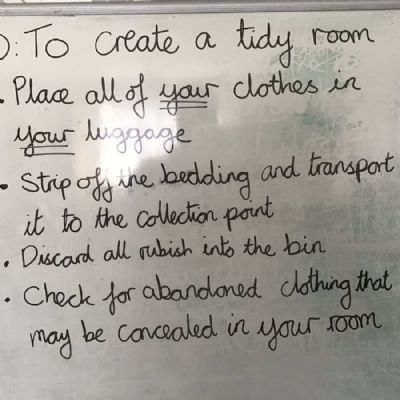 O: To create a tidy room
• Place all of your clothes in
your luggage
• Strip off the bedding and transport
it to the collection point
• Discard all rubish into the bin
• Check for abandoned clothing that
may be concealed in your room